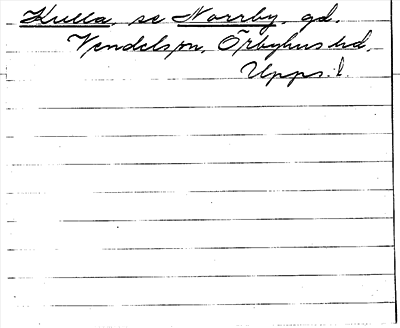 Kulla, se Norrby, gd,
Vendels sn, Örbyhus hd,
Upps. l.